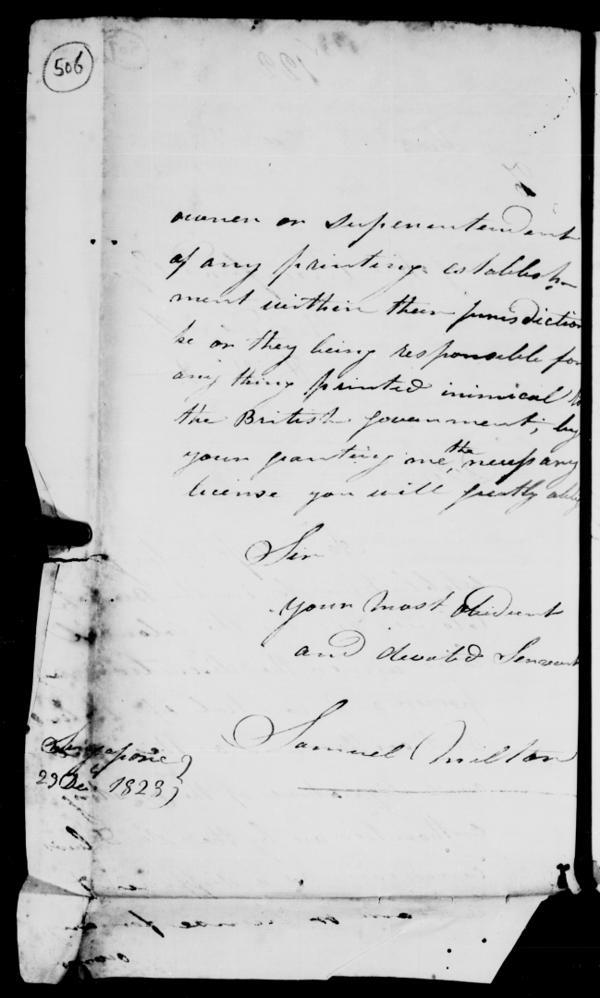 506
owner or superentendent
of any printing establish-
ment within their jurisdiction
he or they being responsible for
any thing printed inimical to
the British government; by
your granting me, the necessary
license you will greatly oblig
Sir
your most obedient
and devoted Servant
Samuel Milton
Singapore
29 Dec. 1823